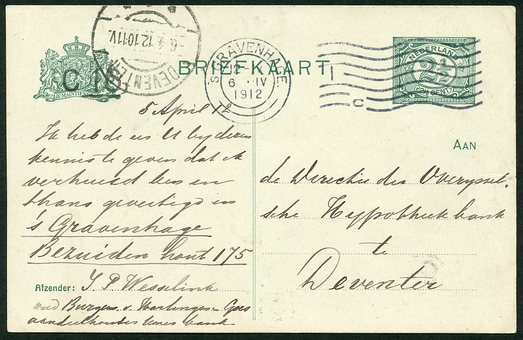 BRIEFKAART
C 18
DEVENTER
6.4.12.1011V.
'S GRAVENHAGE
6 IV
1912
NEDERLAND
2½
CENT
5 April 12
Ik heb de eer U bij dezen
kennis te geven dat ik
verhuisd ben en
thans gevestigd en
's Gravenhage
Bezuiden hout 175
Afzender: J. P. Wesselink
oud Burgem. v. Goes
aandeelhouder Uwer bank
AAN
de Directie des Overijssel-
sche Hypotheek bank
te
Deventer